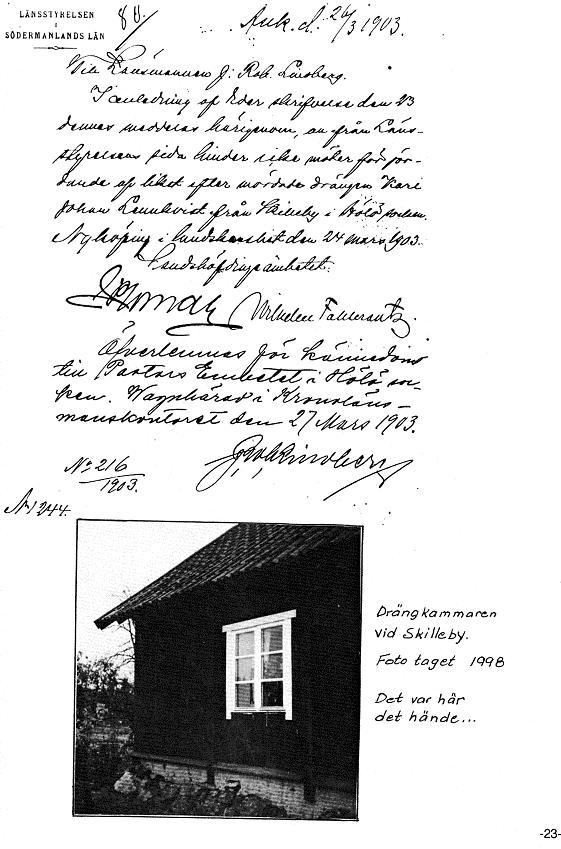 LÄNSSTYRELSEN
I
SÖDERMANLANDS LÄN
Ank. d. 26/3 1903.
Till Länsmannen J. Rob. Lindberg.
I anledning af Eder skrifvelse den 23
dennes meddelas härigenom, att från Läns-
styrelsens sida hinder icke möter för jor-
dande af liket efter mördade drängen Karl
Johan Lennkvist från Skilleby i Hölö socken.
Nyköping i landskansliet den 24 mars 1903.
Landshöfdingeämbetet.
Wilhelm
Öfverlemnas för kännedom
till Pastors Embetet i Hölö soc-
ken. Wagnhärad i Kronoläns-
manskontoret den 27 Mars 1903.
J. Rob. Lindberg
No 216
1903.
No 1244.
Drängkammaren
vid Skilleby.
Foto taget 1998
Det var här
det hände...
-23-